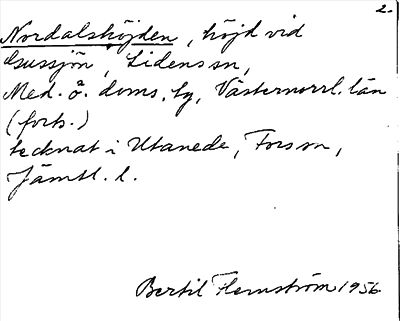 2.
Nordalshöjden, höjd vid
Gussjön, Lidens sn,
Med. ö. doms. hg, Västernorrl. län
(forts.)
tecknat i Utanede, Fors sn,
Jämtl. l.
Bertil Flemström 1956